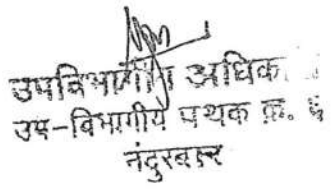 उपविभागीय अधिक
उप-विभागीय पथक क्र. ६
नंदुरबार